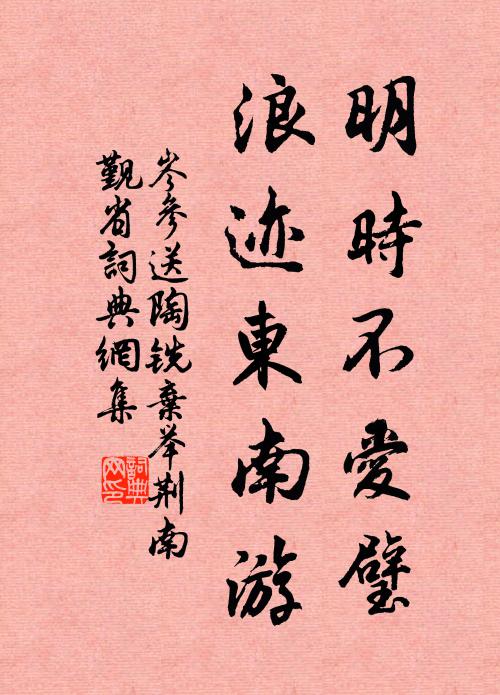 明時不愛璧
浪迹東南游
岑參送陶銑棄举荆南
觐省詞典網集
詞典网印